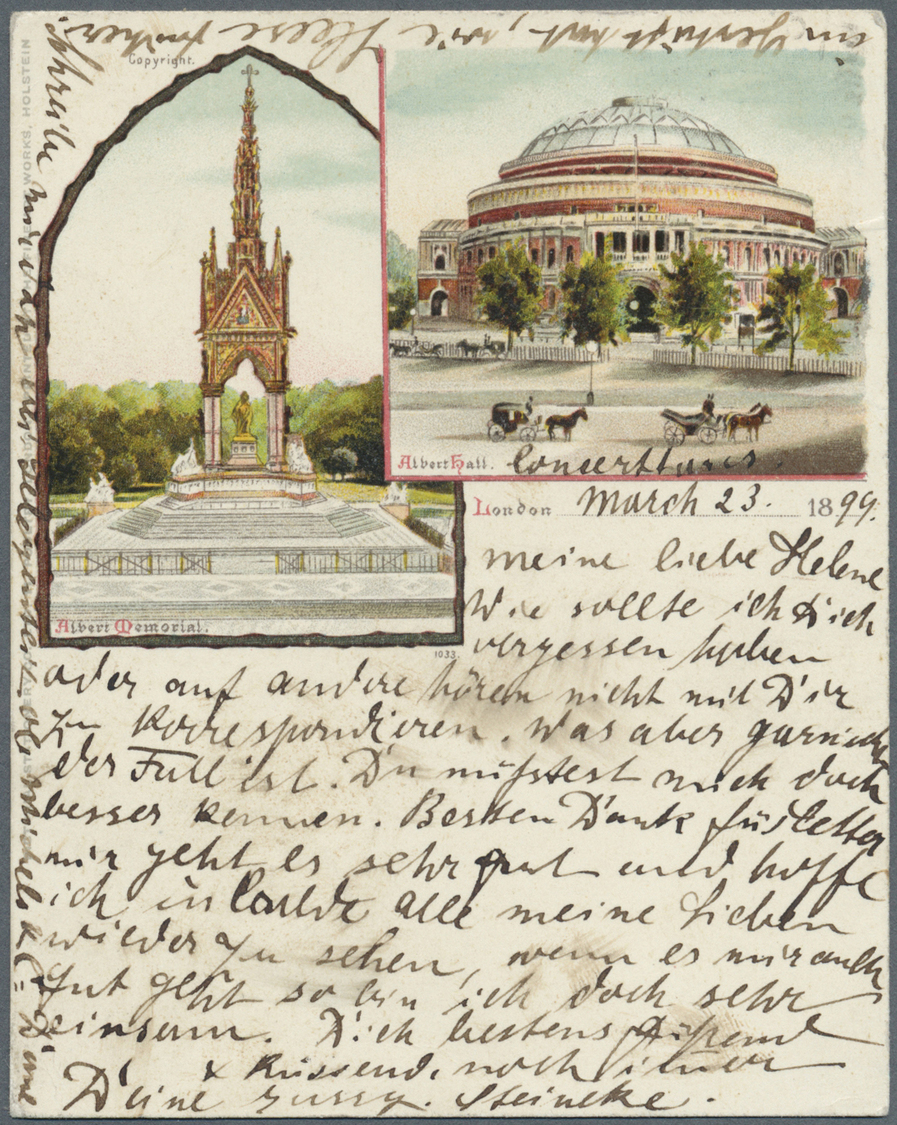 Copyright.
Albert Hall.
London March 23. 1899.
Albert Memorial.
1033.
meine liebe Helene
Wie sollte ich Dich
vergessen haben
oder auf andere hören nicht mit Dir
zu korrespondieren. Was aber garnicht
der Fall ist. Du müsstest mich doch
besser kennen. Besten Dank für Letter
mir geht es sehr gut und hoffe
ich in alle meine Lieben
wieder zu sehen, wenn es mir auch
gut geht so bin ich doch sehr
einsam. Dich bestens
& Küssend, noch immer
Deine Steineke.
schreibe mir
WORKS, HOLSTEIN